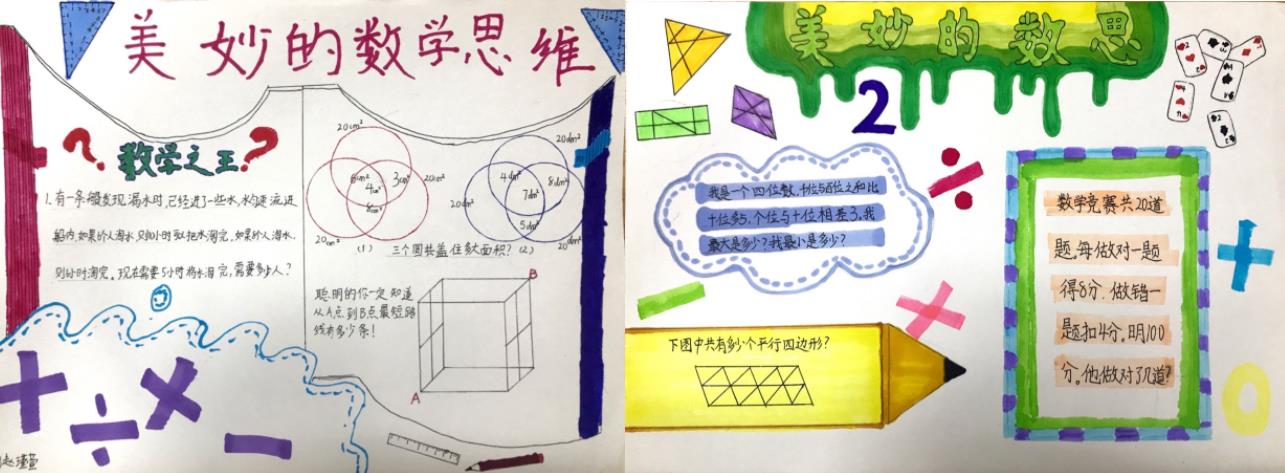 美妙的数学思维
数学之王
1.有一条船发现漏水时,已经进了一些水,水匀速流进
船内.如果10人淘水,3小时可以把水淘完.如果5人淘水.
8小时淘完.现在需要5小时将水淘完,需要多少人?
20cm²
6cm²
3cm²
20cm²
4cm²
8cm²
20cm²
(1)
20dm²
4dm²
8dm²
7dm²
20dm²
5dm²
20dm²
(2)
三个圆共盖住多大面积?
聪明的你一定知道
从A点到B点最短路
线有多少条!
B
A
赵瑾萱
美妙的数思
2
我是一个四位数,十位与百位之和比
十位多5,个位与十位相差3,我
最大是多少?我最小是多少?
下图中共有多少个平行四边形?
数学竞赛共20道
题.每做对一题
得8分.做错一
题扣4分.明100
分.他做对了几道?
0